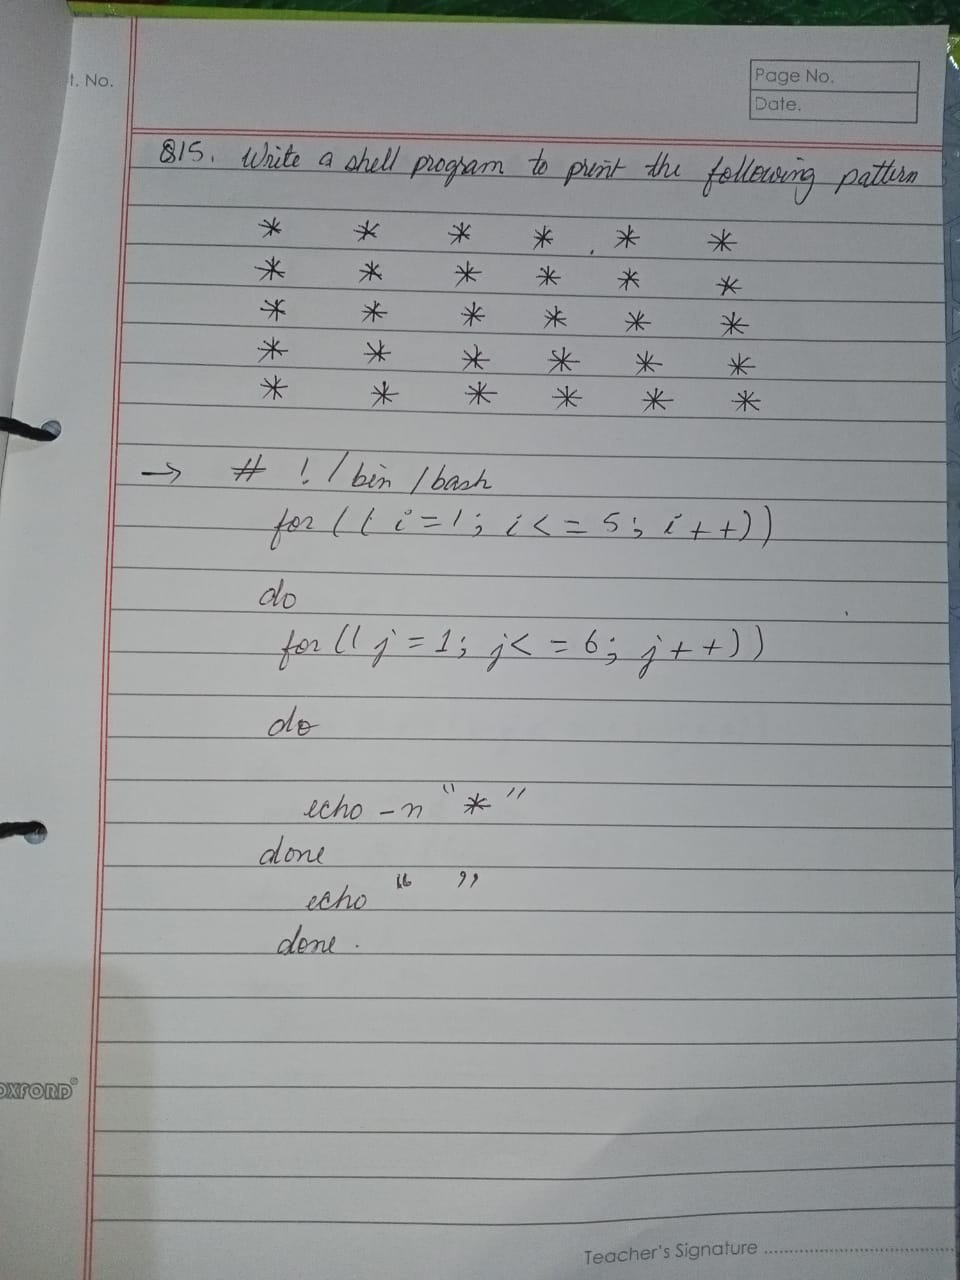 t. No.
Page No.
Date.
Q15. Write a shell program to print the following pattern
* * * * * *
* * * * * *
* * * * * *
* * * * * *
* * * * * *
→ # ! / bin / bash
for (( i = 1; i < = 5; i + + ))
do
for (( j = 1; j < = 6; j + + ))
do
echo -n " * "
done
echo “ ”
done.
OXFORD®
Teacher's Signature ..............................